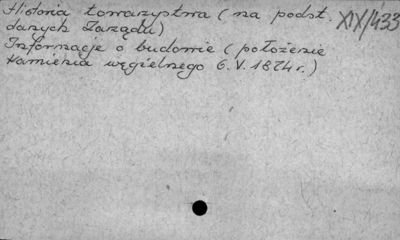 Historia towarzystwa (na podst.
danych Zarządu)
XIX/433
Informacje o budowie (położenie
kamienia węgielnego 6.V.1874r.)